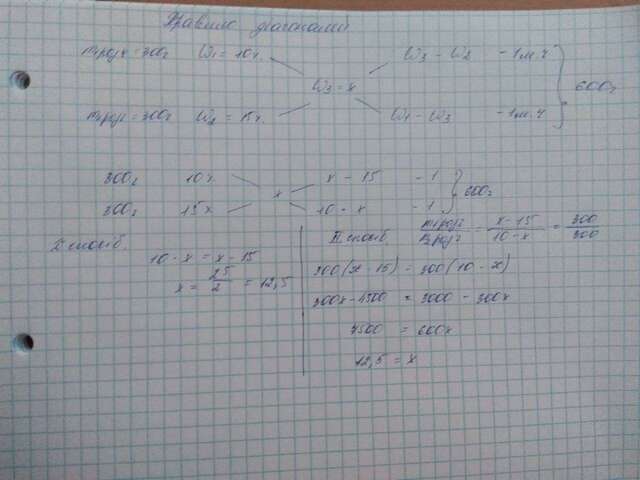 Правило диагоналей
mр-ра1 = 300г W1 = 10% W3 - W2 - 1 м.ч
W3 = x 600г
mр-ра2 = 300г W2 = 15% W1 - W3 - 1 м.ч
300г 10% x - 15 - 1
x 600г
300г 15% 10 - x - 1
I способ.
10 - x = x - 15
x = 25/2 = 12,5
II способ. mр-ра1/mр-ра2 = x - 15/10 - x = 300/300
300(x - 15) = 300(10 - x)
300x - 4500 = 3000 - 300x
7500 = 600x
12,5 = x